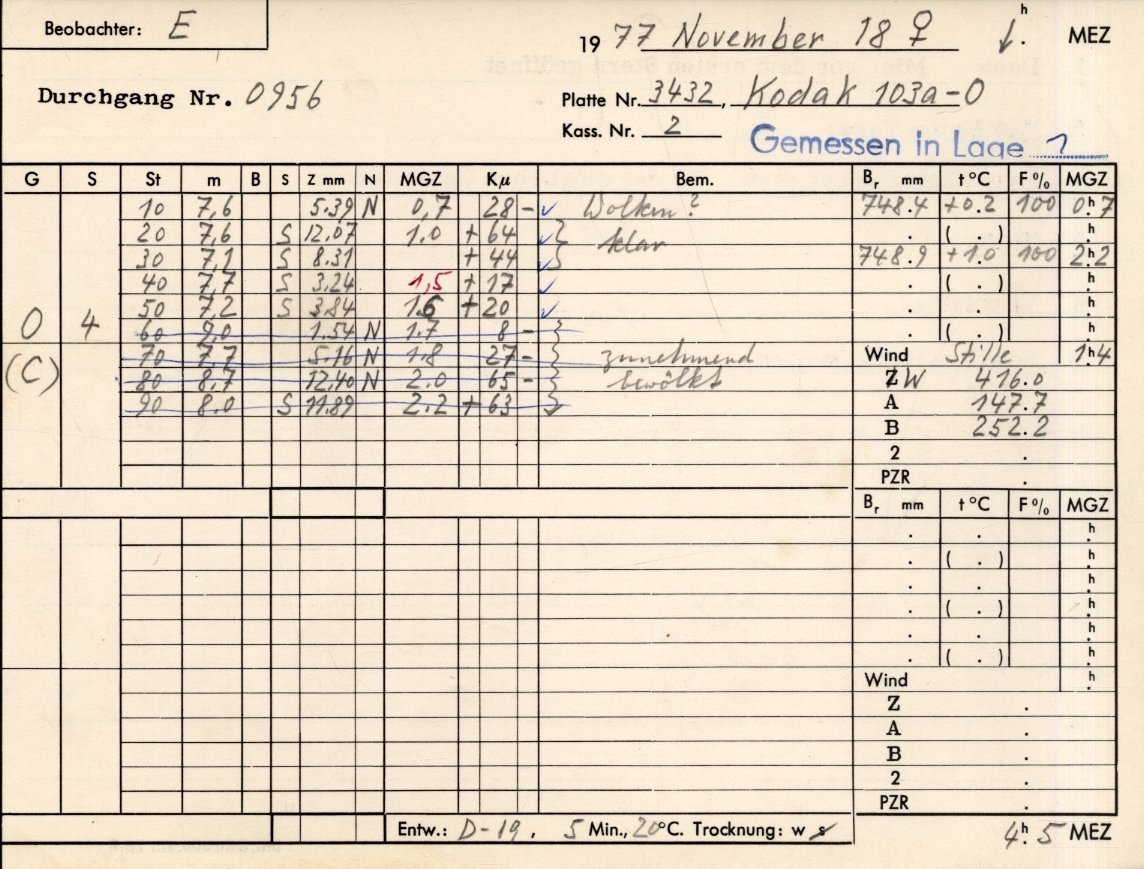 Beobachter: E
19 77 November 18 ♀ h. MEZ
Durchgang Nr. 0956
Platte Nr. 3432, Kodak 103a-O
Kass. Nr. 2
Gemessen in Lage 1
G S St m B S Z mm N MGZ Kμ Bem. Br mm t °C F % MGZ
10 7,6 5.39 N 0,7 28 - ✓ Wolken? 748.4 +0.2 100 0h.7
20 7,6 S 12.07 1.0 + 64 ✓ } klar . ( . ) h.
30 7,1 S 8.31 + 44 ✓ } 748.9 +1.0 100 2h.2
40 7,7 S 3.24 1,5 + 17 ✓ . ( . ) h.
50 7,2 S 3.84 1.6 + 20 ✓ . . h.
0 4 60 9,0 1.54 N 1.7 8 - } . ( . ) h.
(C) 70 7.7 5.16 N 1.8 27 - } zunehmend Wind Stille 1h.4
80 8,7 12.40 N 2.0 65 - } bewölkt Z W 416.0
90 8.0 S 11.89 2.2 + 63 } A 147.7
B 252.2
2 .
PZR .
Br mm t °C F % MGZ
. . h.
. ( . ) h.
. . h.
. ( . ) h.
. . h.
. ( . ) h.
Wind h.
Z .
A .
B .
2 .
PZR .
Entw.: D-19, 5 Min., 20°C. Trocknung: w s
4h. 5 MEZ